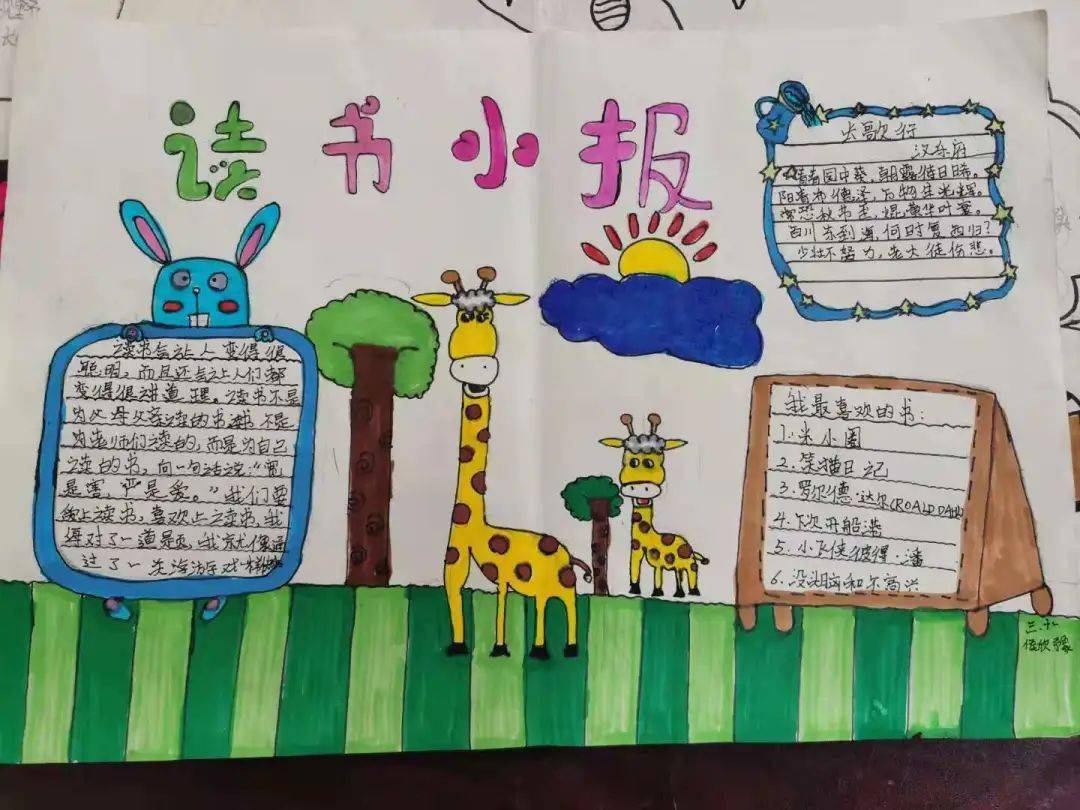 读书小报
长歌行
汉乐府
青青园中葵,朝露待日晞。
阳春布德泽,万物生光辉。
常恐秋节至,焜黄华叶衰。
百川东到海,何时复西归?
少壮不努力,老大徒伤悲。
读书会让人变得很
聪明,而且还会让人们都
变得很讲道理。读书不是
为父母父亲读的书,读书不是
为老师们读的,而是为自己
读的书,向一句话说:“宽
是害,严是爱。”我们要
爱上读书,喜欢上读书,我
得对了一道题,我就像通
过了一关游戏一样
我最喜欢的书:
1.米小圈
2.笑猫日记
3.罗尔德·达尔(ROALD DAHL
4.下次开船港
5.小飞侠彼得·潘
6.没头脑和不高兴
三.十
欣